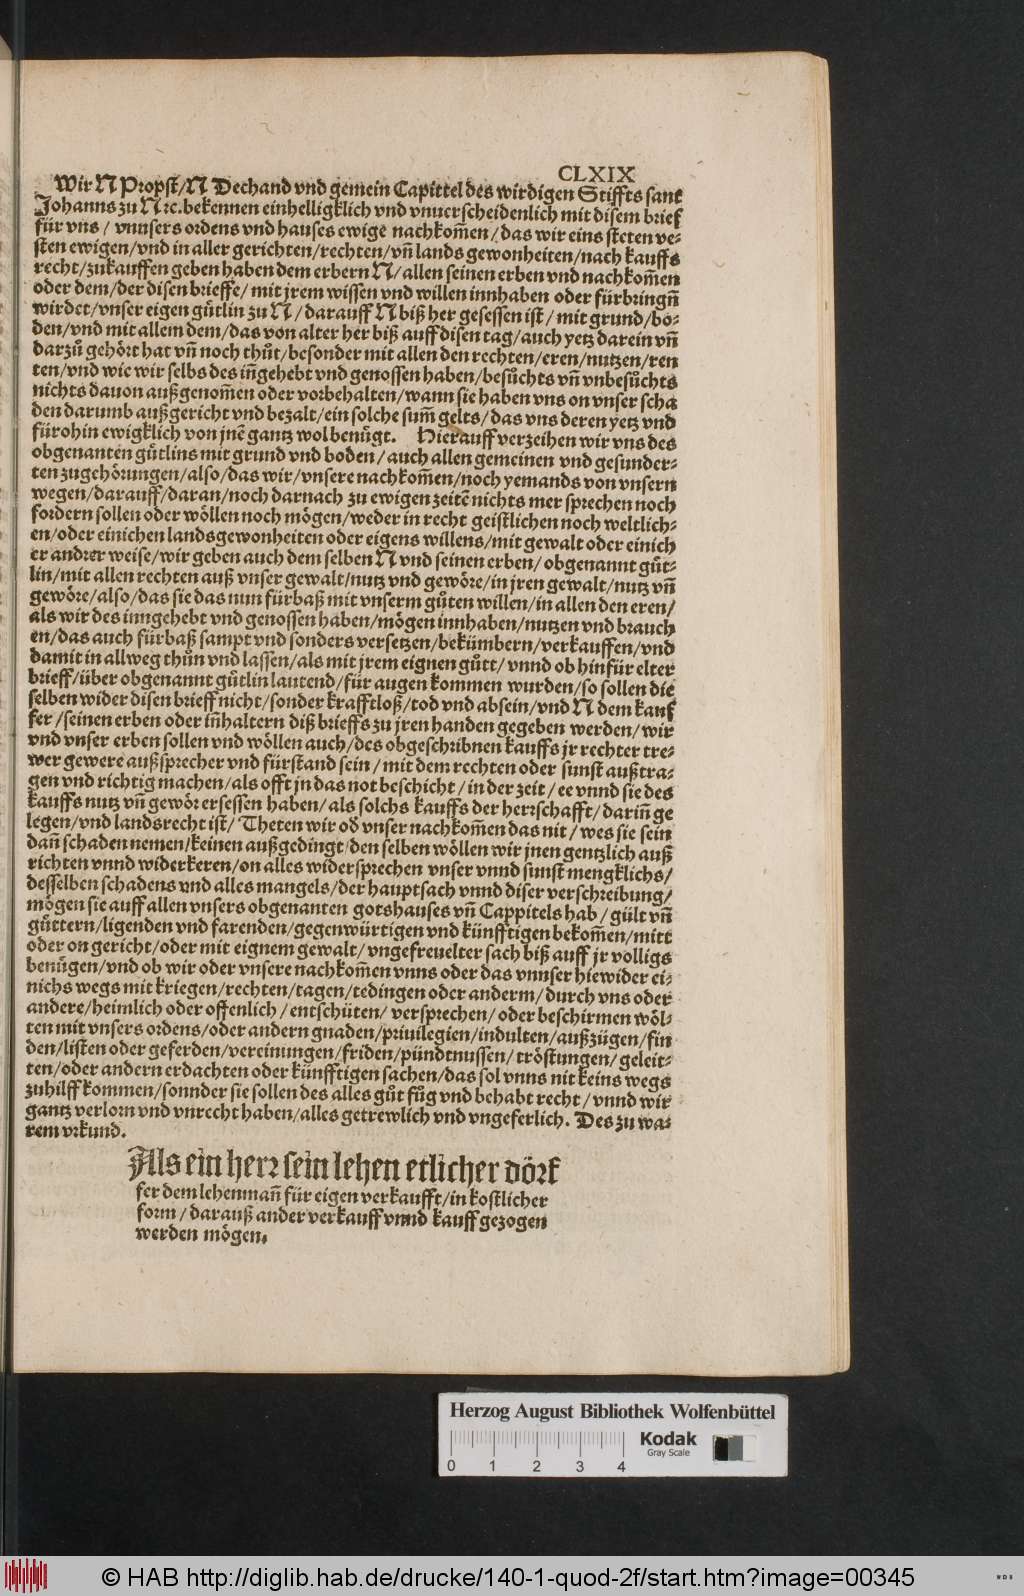 CLXIX
Wir N Propst/N Dechand vnd gemein Capittel des wirdigen Stiffts sant
Johanns zu N ꝛc. bekennen einhelligklich vnd vnuerscheidenlich mit disem brief
für vns / vnnsers ordens vnd hauses ewige nachkom̃en / das wir eins steten ve-
sten ewigen/vnd in aller gerichten/rechten/vñ lands gewonheiten/nach kauffs
recht/zukauffen geben haben dem erbern N/allen seinen erben vnd nachkom̃en
oder dem/der disen brieffe/mit jrem wissen vnd willen innhaben oder fürbringñ
wirdet/vnser eigen gütlin zu N / darauff N biß her gesessen ist / mit grund/bo-
den/vnd mit allem dem/das von alter her biß auff disen tag/auch yetz darein vñ
darzů gehört hat vñ noch thůt/besonder mit allen den rechten/eren/nutzen/ren
ten/vnd wie wir selbs des iñgehebt vnd genossen haben/besůchts vñ vnbesůchts
nichts dauon außgenom̃en oder vorbehalten/wann sie haben vns on vnser scha
den darumb außgericht vnd bezalt/ein solche sum̃ gelts/das vns deren yetz vnd
fürohin ewigklich von jnẽ gantz wol benügt. Hierauff verzeihen wir vns des
obgenanten gütlins mit grund vnd boden/auch allen gemeinen vnd gesunder-
ten zugehörungen/also/das wir/vnsere nachkom̃en/noch yemands von vnsern
wegen/darauff/daran/noch darnach zu ewigen zeitẽ nichts mer sprechen noch
fordern sollen oder wöllen noch mögen/weder in recht geistlichen noch weltlich-
en/oder einichen landsgewonheiten oder eigens willens/mit gewalt oder einich
er andrer weise/wir geben auch dem selben N vnd seinen erben/ obgenannt güt-
lin/mit allen rechten auß vnser gewalt/nutz vnd gewöre/in jren gewalt/nutz vñ
gewöre/also/das sie das nun fürbaß mit vnserm gůten willen/in allen den eren/
als wir des inngehebt vnd genossen haben/mögen innhaben/nutzen vnd brauch
en/das auch fürbaß sampt vnd sonders versetzen/bekümbern/verkauffen/vnd
damit in allweg thůn vnd lassen/als mit jrem eignen gůtt/ vnnd ob hinfür elter
brieff/über obgenannt gütlin lautend/für augen kommen wurden/so sollen die
selben wider disen brieff nicht/sonder krafftloß/tod vnd absein/vnd N dem kauf
fer/seinen erben oder iñhaltern diß brieffs zu jren handen gegeben werden/wir
vnd vnser erben sollen vnd wöllen auch/des obgeschribnen kauffs jr rechter tre-
wer gewere außsprecher vnd fürstand sein / mit dem rechten oder sunst außtra-
gen vnd richtig machen/als offt jn das not beschicht/in der zeit/ee vnnd sie des
kauffs nutz vñ gewör ersessen haben/als solchs kauffs der herrschafft/dariñ ge
legen/vnd landsrecht ist/ Theten wir od̕ vnser nachkom̃en das nit/wes sie sein
dañ schaden nemen/keinen außgedingt/den selben wöllen wir jnen gentzlich auß
richten vnnd widerkeren/on alles widersprechen vnser vnnd sunst mengklichs/
desselben schadens vnd alles mangels/der hauptsach vnnd diser verschreibung/
mögen sie auff allen vnsers obgenanten gotshauses vñ Cappitels hab / gült vñ
güttern/ligenden vnd farenden/gegenwürtigen vnd künfftigen bekom̃en/mitt
oder on gericht/oder mit eignem gewalt/vngefreuelter sach biß auff jr völligs
benügen/vnd ob wir oder vnsere nachkom̃en vnns oder das vnnser hiewider ei-
nichs wegs mit kriegen/rechten/tagen/tedingen oder anderm/durch vns oder
andere/heimlich oder offenlich/entschüten/ versprechen/oder beschirmen wöl-
ten mit vnsers ordens/oder andern gnaden/priuilegien/indulten/außzügen/fin
den/listen oder geferden/vereinungen/friden/pündtnussen/tröstungen/geleit-
ten/oder andern erdachten oder künfftigen sachen/das sol vnns nit keins wegs
zuhilff kommen/sonnder sie sollen des alles gůt fůg vnd behabt recht/vnnd wir
gantz verlorn vnd vnrecht haben/alles getrewlich vnd vngeferlich. Des zu wa-
rem vrkund.
Als ein herr sein lehen etlicher dörf
fer dem lehenmañ für eigen verkaufft/in kostlicher
form/darauß ander verkauff vnnd kauff gezogen
werden mögen.
Herzog August Bibliothek Wolfenbüttel
Kodak
Gray Scale
0 1 2 3 4
© HAB http://diglib.hab.de/drucke/140-1-quod-2f/start.htm?image=00345